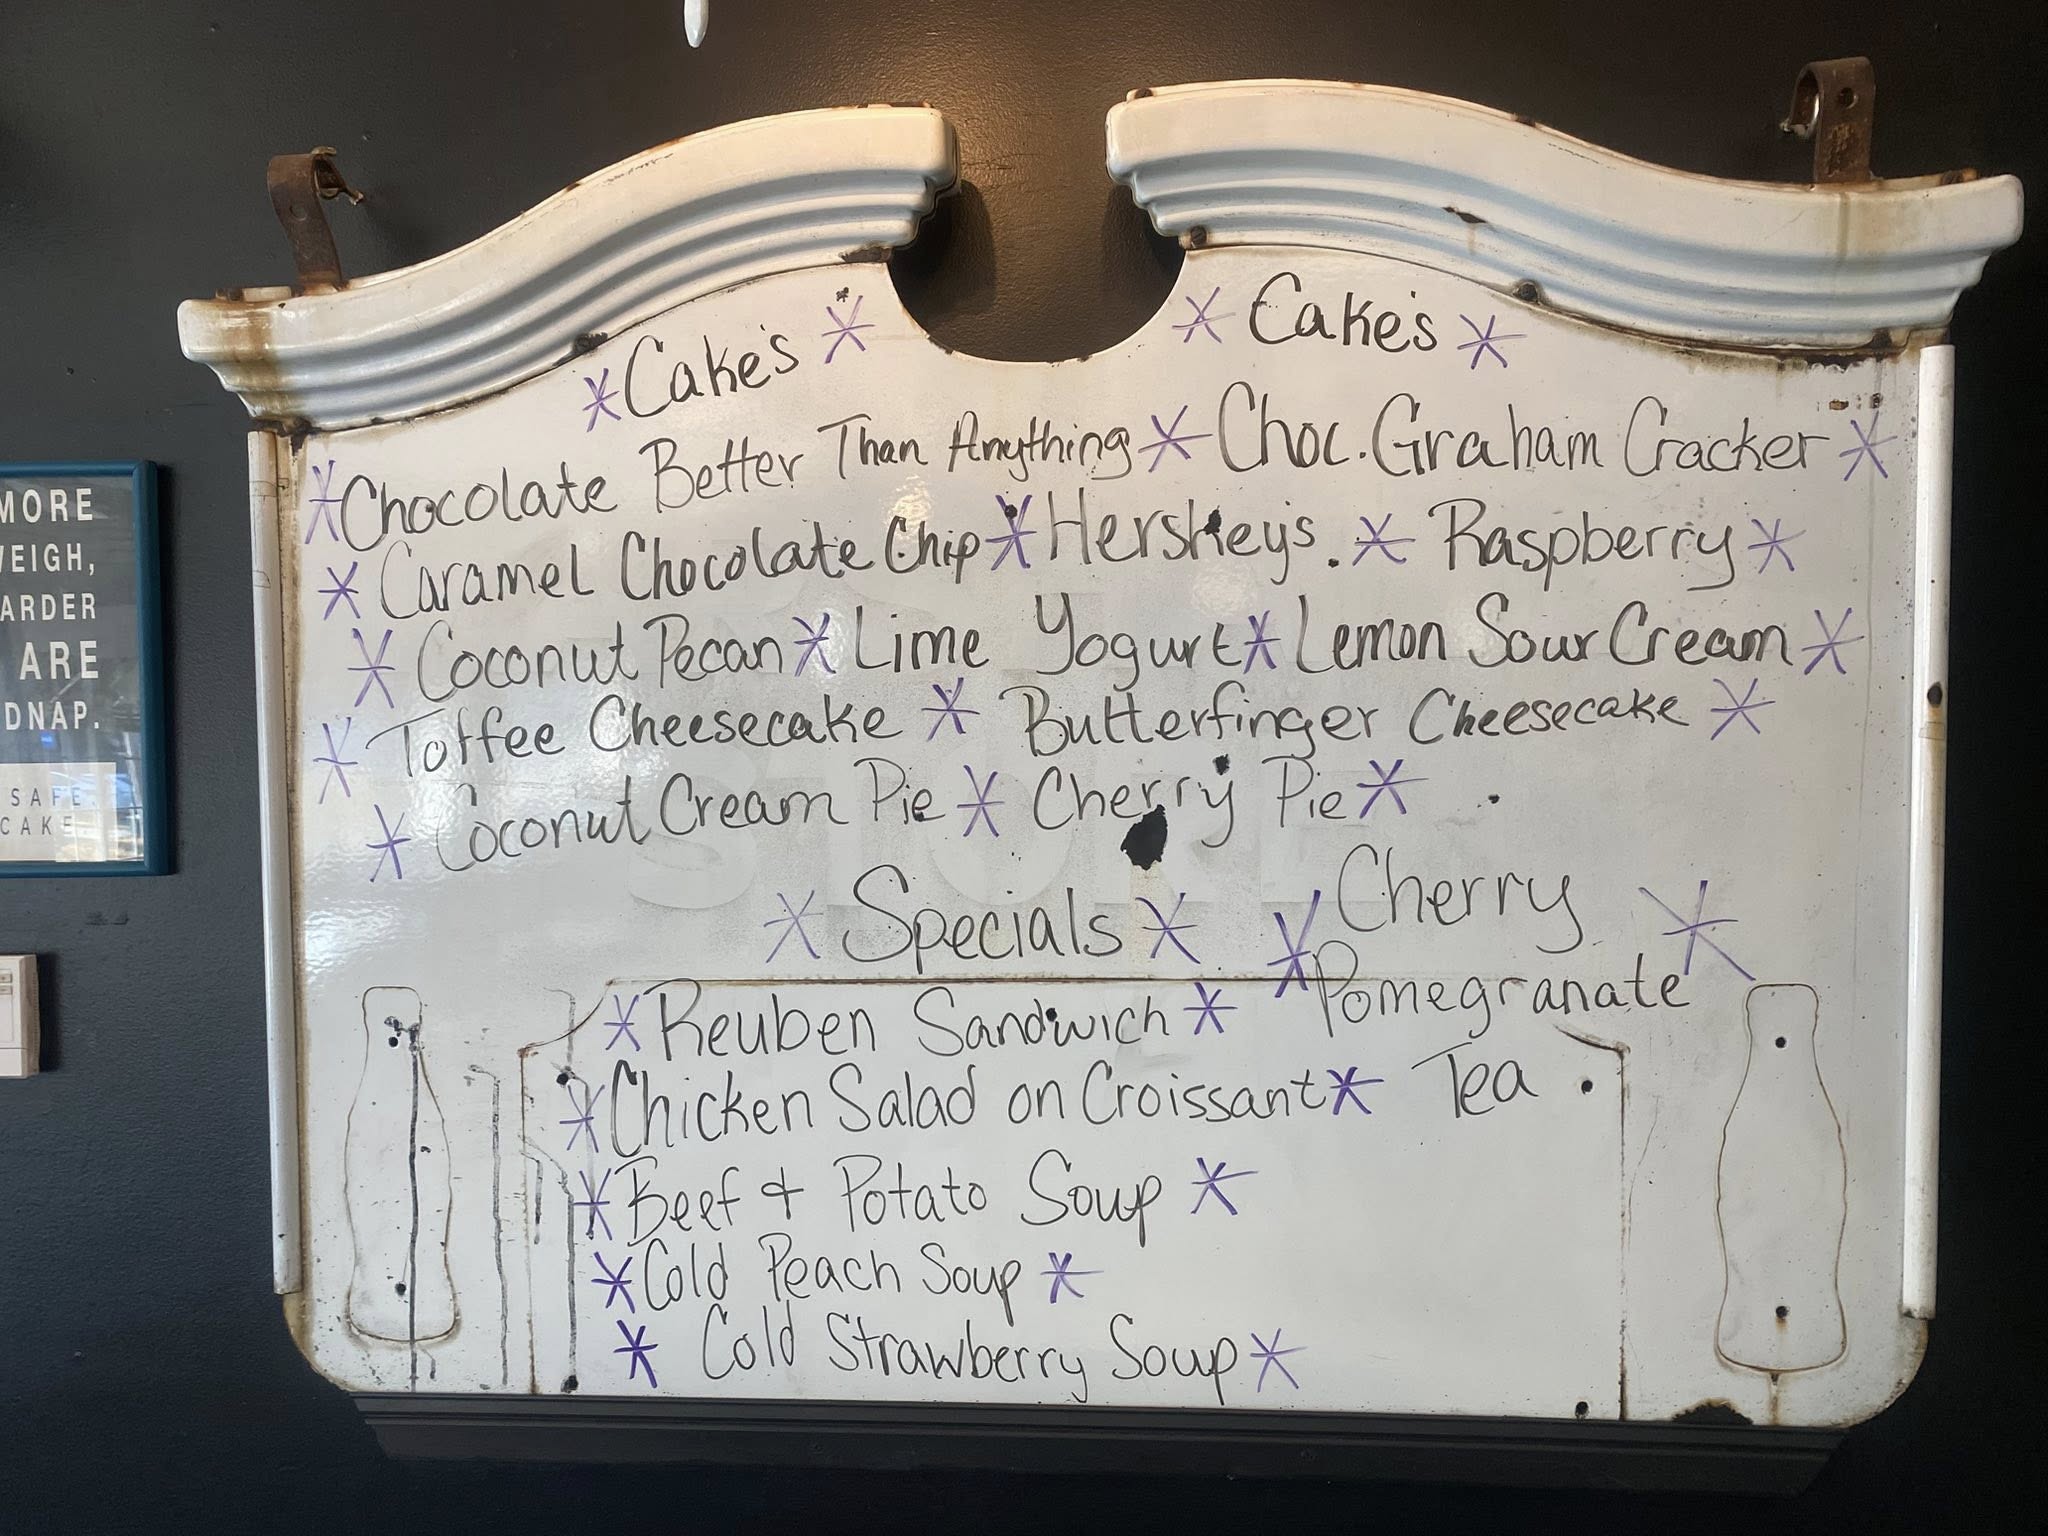 * Cake's * * Cake's *
* Chocolate Better Than Anything * Choc. Graham Cracker *
* Caramel Chocolate Chip * Hershey's. * Raspberry *
* Coconut Pecan * Lime Yogurt * Lemon Sour Cream *
* Toffee Cheesecake * Butterfinger Cheesecake *
* Coconut Cream Pie * Cherry Pie *
* Specials *
* Reuben Sandwich *
* Chicken Salad on Croissant *
* Beef & Potato Soup *
* Cold Peach Soup *
* Cold Strawberry Soup *
* Cherry *
Pomegranate
Tea
MORE
WEIGH,
ARDER
ARE
DNAP.
SAFE.
CAKE
STORE